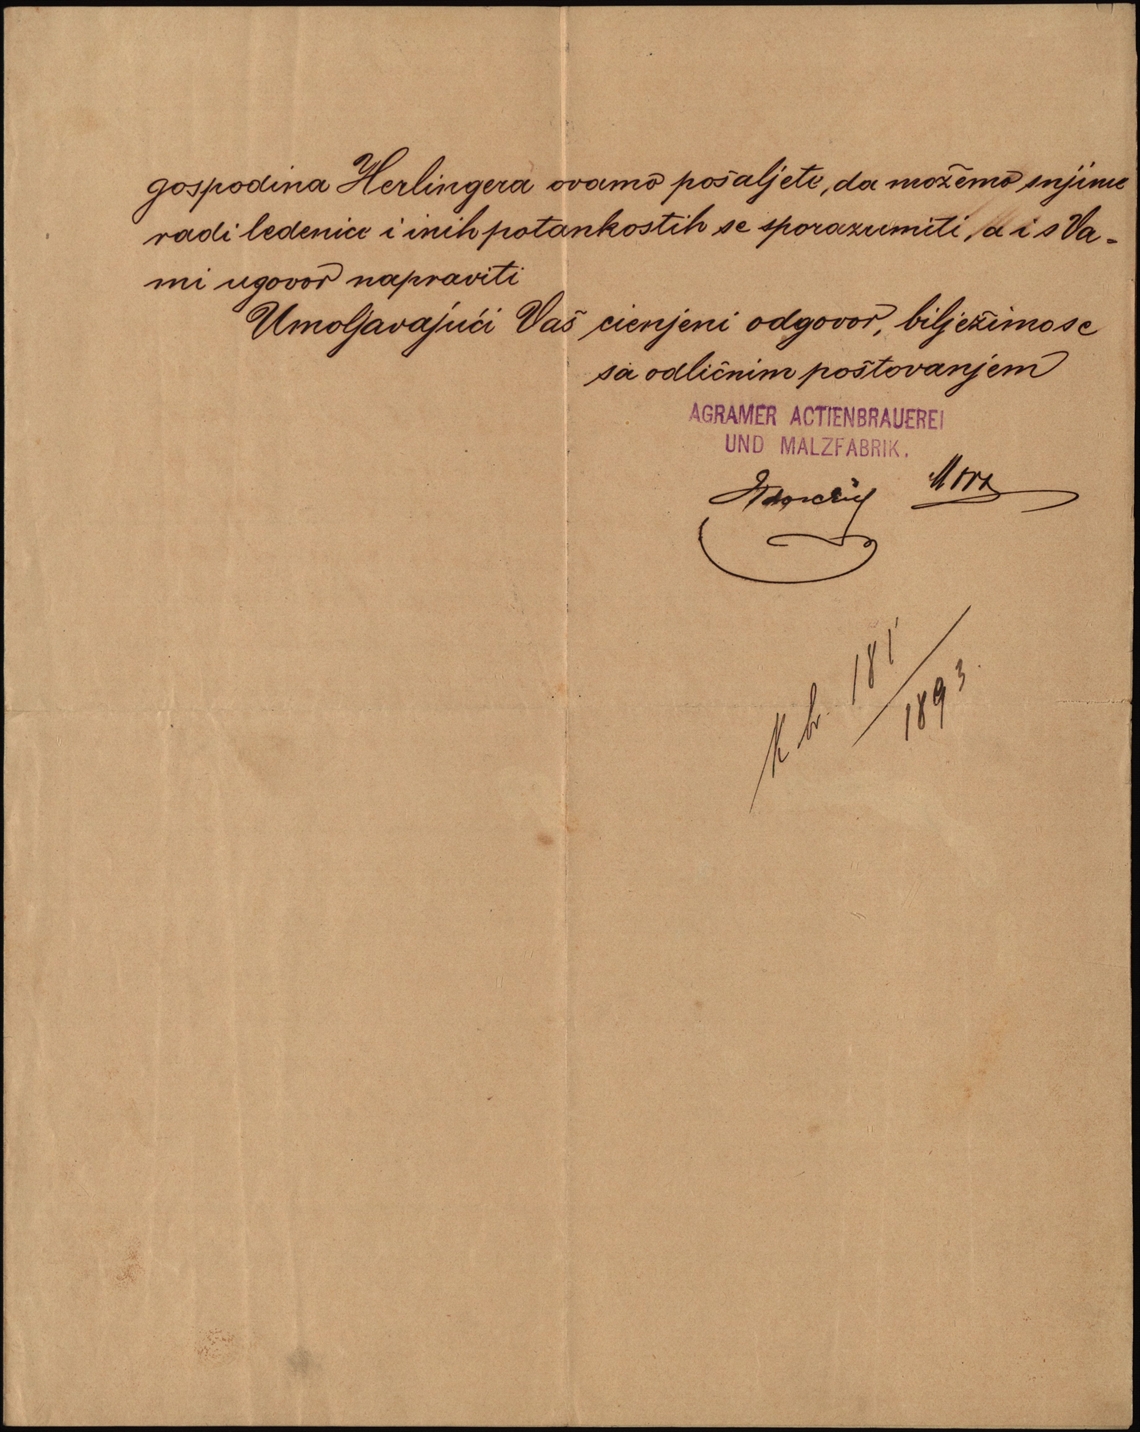 gospodina Herlingera ovamo pošaljete, da možemo snjime
radi ledenice i inih potankostih se sporazumiti, a i s Va-
mi ugovor napraviti
Umoljavajući Vaš cienjeni odgovor, bilježimo se
sa odličnim poštovanjem
AGRAMER ACTIENBRAUEREI
UND MALZFABRIK.
K br. 181
1893.